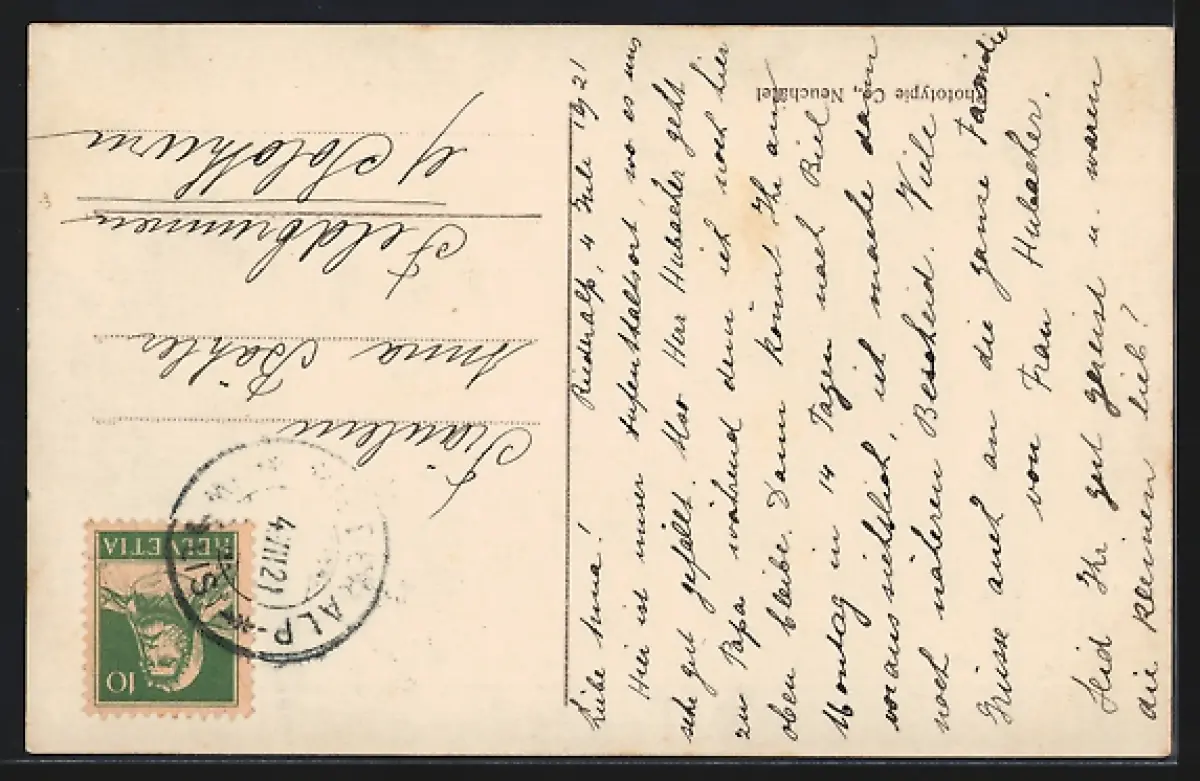 Riederalp, 4 Juli 1921
Liebe Anna!
Hier ist unser Aufenthaltsort, wo es uns
sehr gut gefällt. Herr Hubacher geht
zu Papa während dem ich noch hier
oben bleibe. Dann könnt Ihr am
Montag in 14 Tagen nach Biel
voraussichtlich, ich mache dann
noch näheren Bescheid. Viele
Grüsse auch an die ganze Familie
von Frau Hubacher.
Seid Ihr gut gereist u. waren
die kleinen lieb?
Phototypie Co., Neuchâtel
Fräulein
Anna Bähler
Feldbrunnen
Solothurn
HELVETIA
10
4.VII.21
ALP